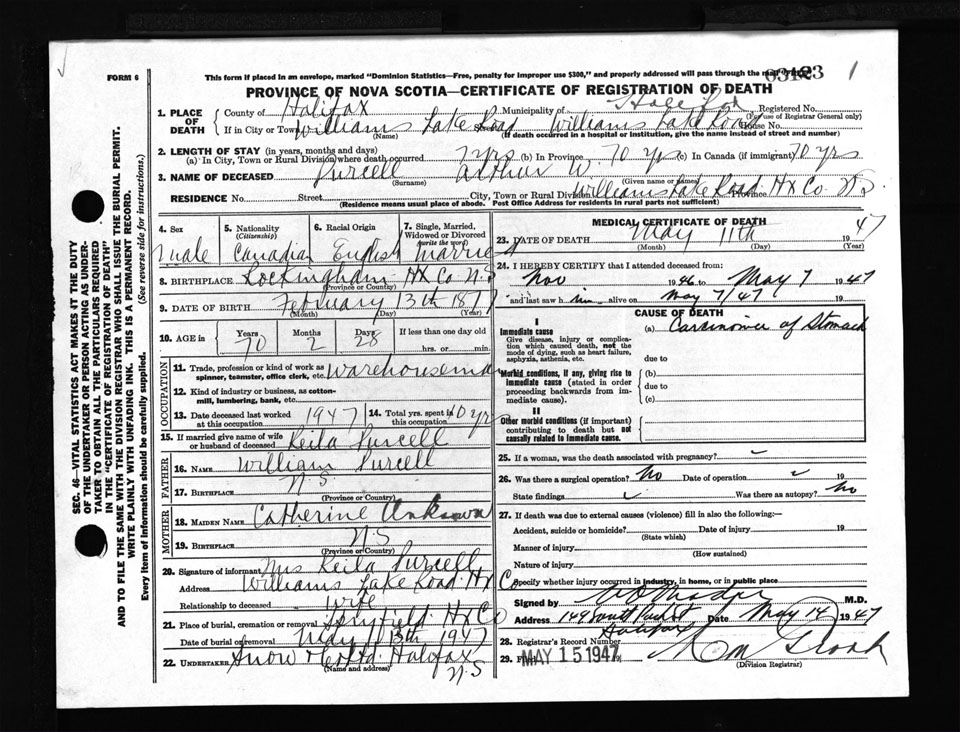 FORM 6
This form if placed in an envelope, marked "Dominion Statistics—Free, penalty for improper use $300," and properly addressed will pass through the mail free.
03123
1
PROVINCE OF NOVA SCOTIA—CERTIFICATE OF REGISTRATION OF DEATH
1. PLACE OF DEATH County of Halifax Municipality of Halifax Registered No.
(For use of Registrar General only)
If in City or Town Williams Lake Road Street Williams Lake Road House No.
(Name) (If death occurred in a hospital or institution, give the name instead of street and number)
2. LENGTH OF STAY (in years, months and days)
(a) In City, Town or Rural Division where death occurred 7 yrs (b) In Province 70 yrs (c) In Canada (if immigrant) 70 yrs
3. NAME OF DECEASED Purcell Arthur W.
(Surname) (Given name or names)
RESIDENCE No. Street City, Town or Rural Division Williams Lake Road Hx Co. Province N.S.
(Residence means usual place of abode. Post Office Address for residents in rural parts not sufficient)
4. Sex Male
5. Nationality (Citizenship) Canadian
6. Racial Origin English
7. Single, Married, Widowed or Divorced (write the word) Married
8. BIRTHPLACE Rockingham Hx Co N.S
(Province or Country)
9. DATE OF BIRTH February 13th 1877
(Month) (Day) (Year)
10. AGE in Years 70 Months 2 Days 28 If less than one day old
hrs. or min.
OCCUPATION
11. Trade, profession or kind of work as spinner, teamster, office clerk, etc. Warehouseman
12. Kind of industry or business, as cotton-mill, lumbering, bank, etc.
13. Date deceased last worked at this occupation 1947 14. Total yrs. spent in this occupation 40 yrs
15. If married give name of wife or husband of deceased Keila Purcell
FATHER
16. NAME William Purcell
17. BIRTHPLACE N.S.
(Province or Country)
MOTHER
18. MAIDEN NAME Catherine Unknown
19. BIRTHPLACE N.S
(Province or Country)
20. Signature of informant Mrs Keila Purcell
Address Williams Lake Road Hx Co
Relationship to deceased Wife
21. Place of burial, cremation or removal Spryfield Hx Co
Date of burial or removal May 13th 1947
22. UNDERTAKER Snow & Co Ltd. Halifax
(Name and address) N.S
MEDICAL CERTIFICATE OF DEATH
23. DATE OF DEATH May 11th 1947
(Month) (Day) (Year)
24. I HEREBY CERTIFY that I attended deceased from:
Nov 1946 to May 7 1947
and last saw h im alive on May 7/47 19
CAUSE OF DEATH
I
Immediate cause (a) Carcinoma of Stomach
Give disease, injury or complication which caused death, not the mode of dying, such as heart failure, asphyxia, asthenia, etc.
due to
Morbid conditions, if any, giving rise to immediate cause (stated in order proceeding backwards from immediate cause). (b)
due to
(c)
II
Other morbid conditions (if important) contributing to death but not causally related to immediate cause.
25. If a woman, was the death associated with pregnancy?
26. Was there a surgical operation? No Date of operation 19
State findings Was there an autopsy? No
27. If death was due to external causes (violence) fill in also the following:—
Accident, suicide or homicide? Date of injury 19
(State which)
Manner of injury
(How sustained)
Nature of injury
Specify whether injury occurred in industry, in home, or in public place
Signed by M.D.
Address 149 South Park St Date May 14 1947
Halifax
28. Registrar's Record Number
29. Filed MAY 15 1947
(Division Registrar)
SEC. 46—VITAL STATISTICS ACT MAKES IT THE DUTY
OF THE UNDERTAKER OR PERSON ACTING AS UNDER-
TAKER TO OBTAIN ALL THE PARTICULARS REQUIRED
IN THE "CERTIFICATE OF REGISTRATION OF DEATH"
AND TO FILE THE SAME WITH THE DIVISION REGISTRAR WHO SHALL ISSUE THE BURIAL PERMIT.
WRITE PLAINLY WITH UNFADING INK. THIS IS A PERMANENT RECORD.
Every item of information should be carefully supplied. (See reverse side for instructions.)